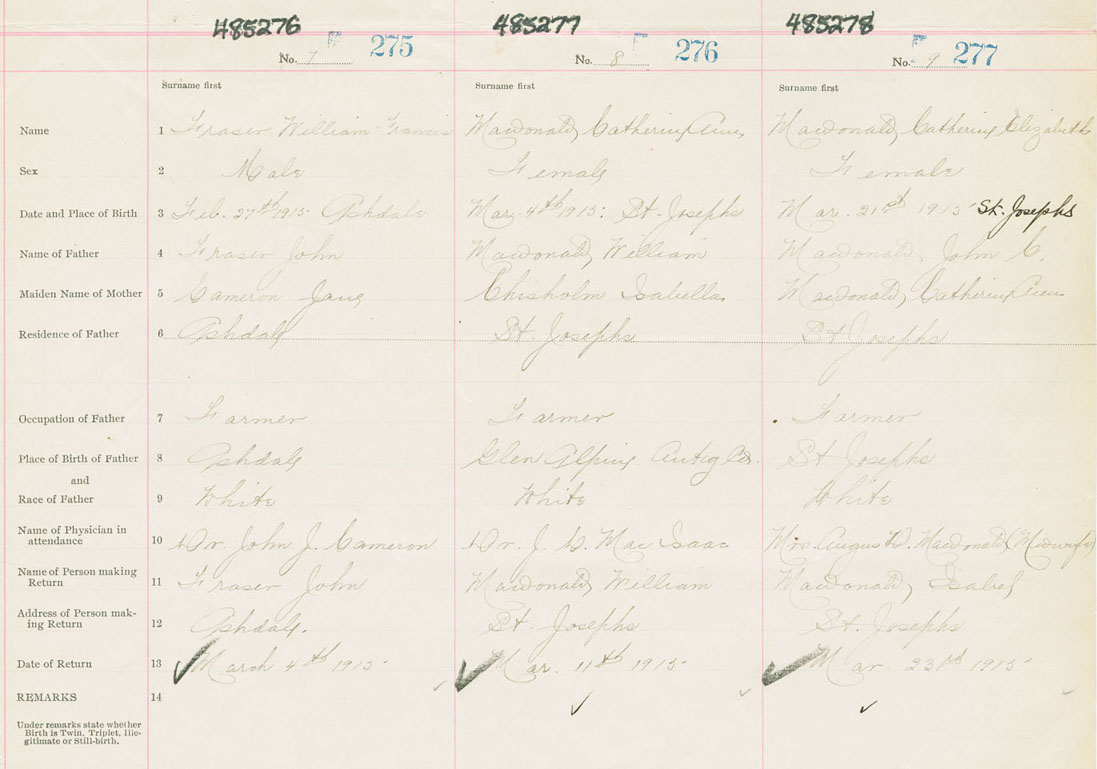 485276 485277 485278
No. 7 275 No. 8 276 No. 9 277
Surname first Surname first Surname first
Name 1 Fraser William Francis Macdonald, Catherine Ann Macdonald, Catherine Elizabeth
Sex 2 Male Female Female
Date and Place of Birth 3 Feb. 27th 1915 Ashdale Mar. 4th 1915: St. Josephs Mar. 21st 1915 St. Josephs
Name of Father 4 Fraser John Macdonald, William Macdonald, John C.
Maiden Name of Mother 5 Cameron Jane Chisholm Isabella Macdonald, Catherine Ann
Residence of Father 6 Ashdale St. Josephs St Josephs
Occupation of Father 7 Farmer Farmer Farmer
Place of Birth of Father 8 Ashdale Glen Alpine Antig Co. St Josephs
and
Race of Father 9 White White White
Name of Physician in
attendance 10 Dr. John J. Cameron Dr. J. Mac Isaac Mrs. Angus D. Macdonald (Midwife)
Name of Person making
Return 11 Fraser John Macdonald, William Macdonald, Isabel
Address of Person mak-
ing Return 12 Ashdale. St Josephs St. Josephs
Date of Return 13 March 4th 1915 Mar. 11th 1915 Mar 23rd 1915
REMARKS 14
Under remarks state whether
Birth is Twin, Triplet, Ille-
gitimate or Still-birth.